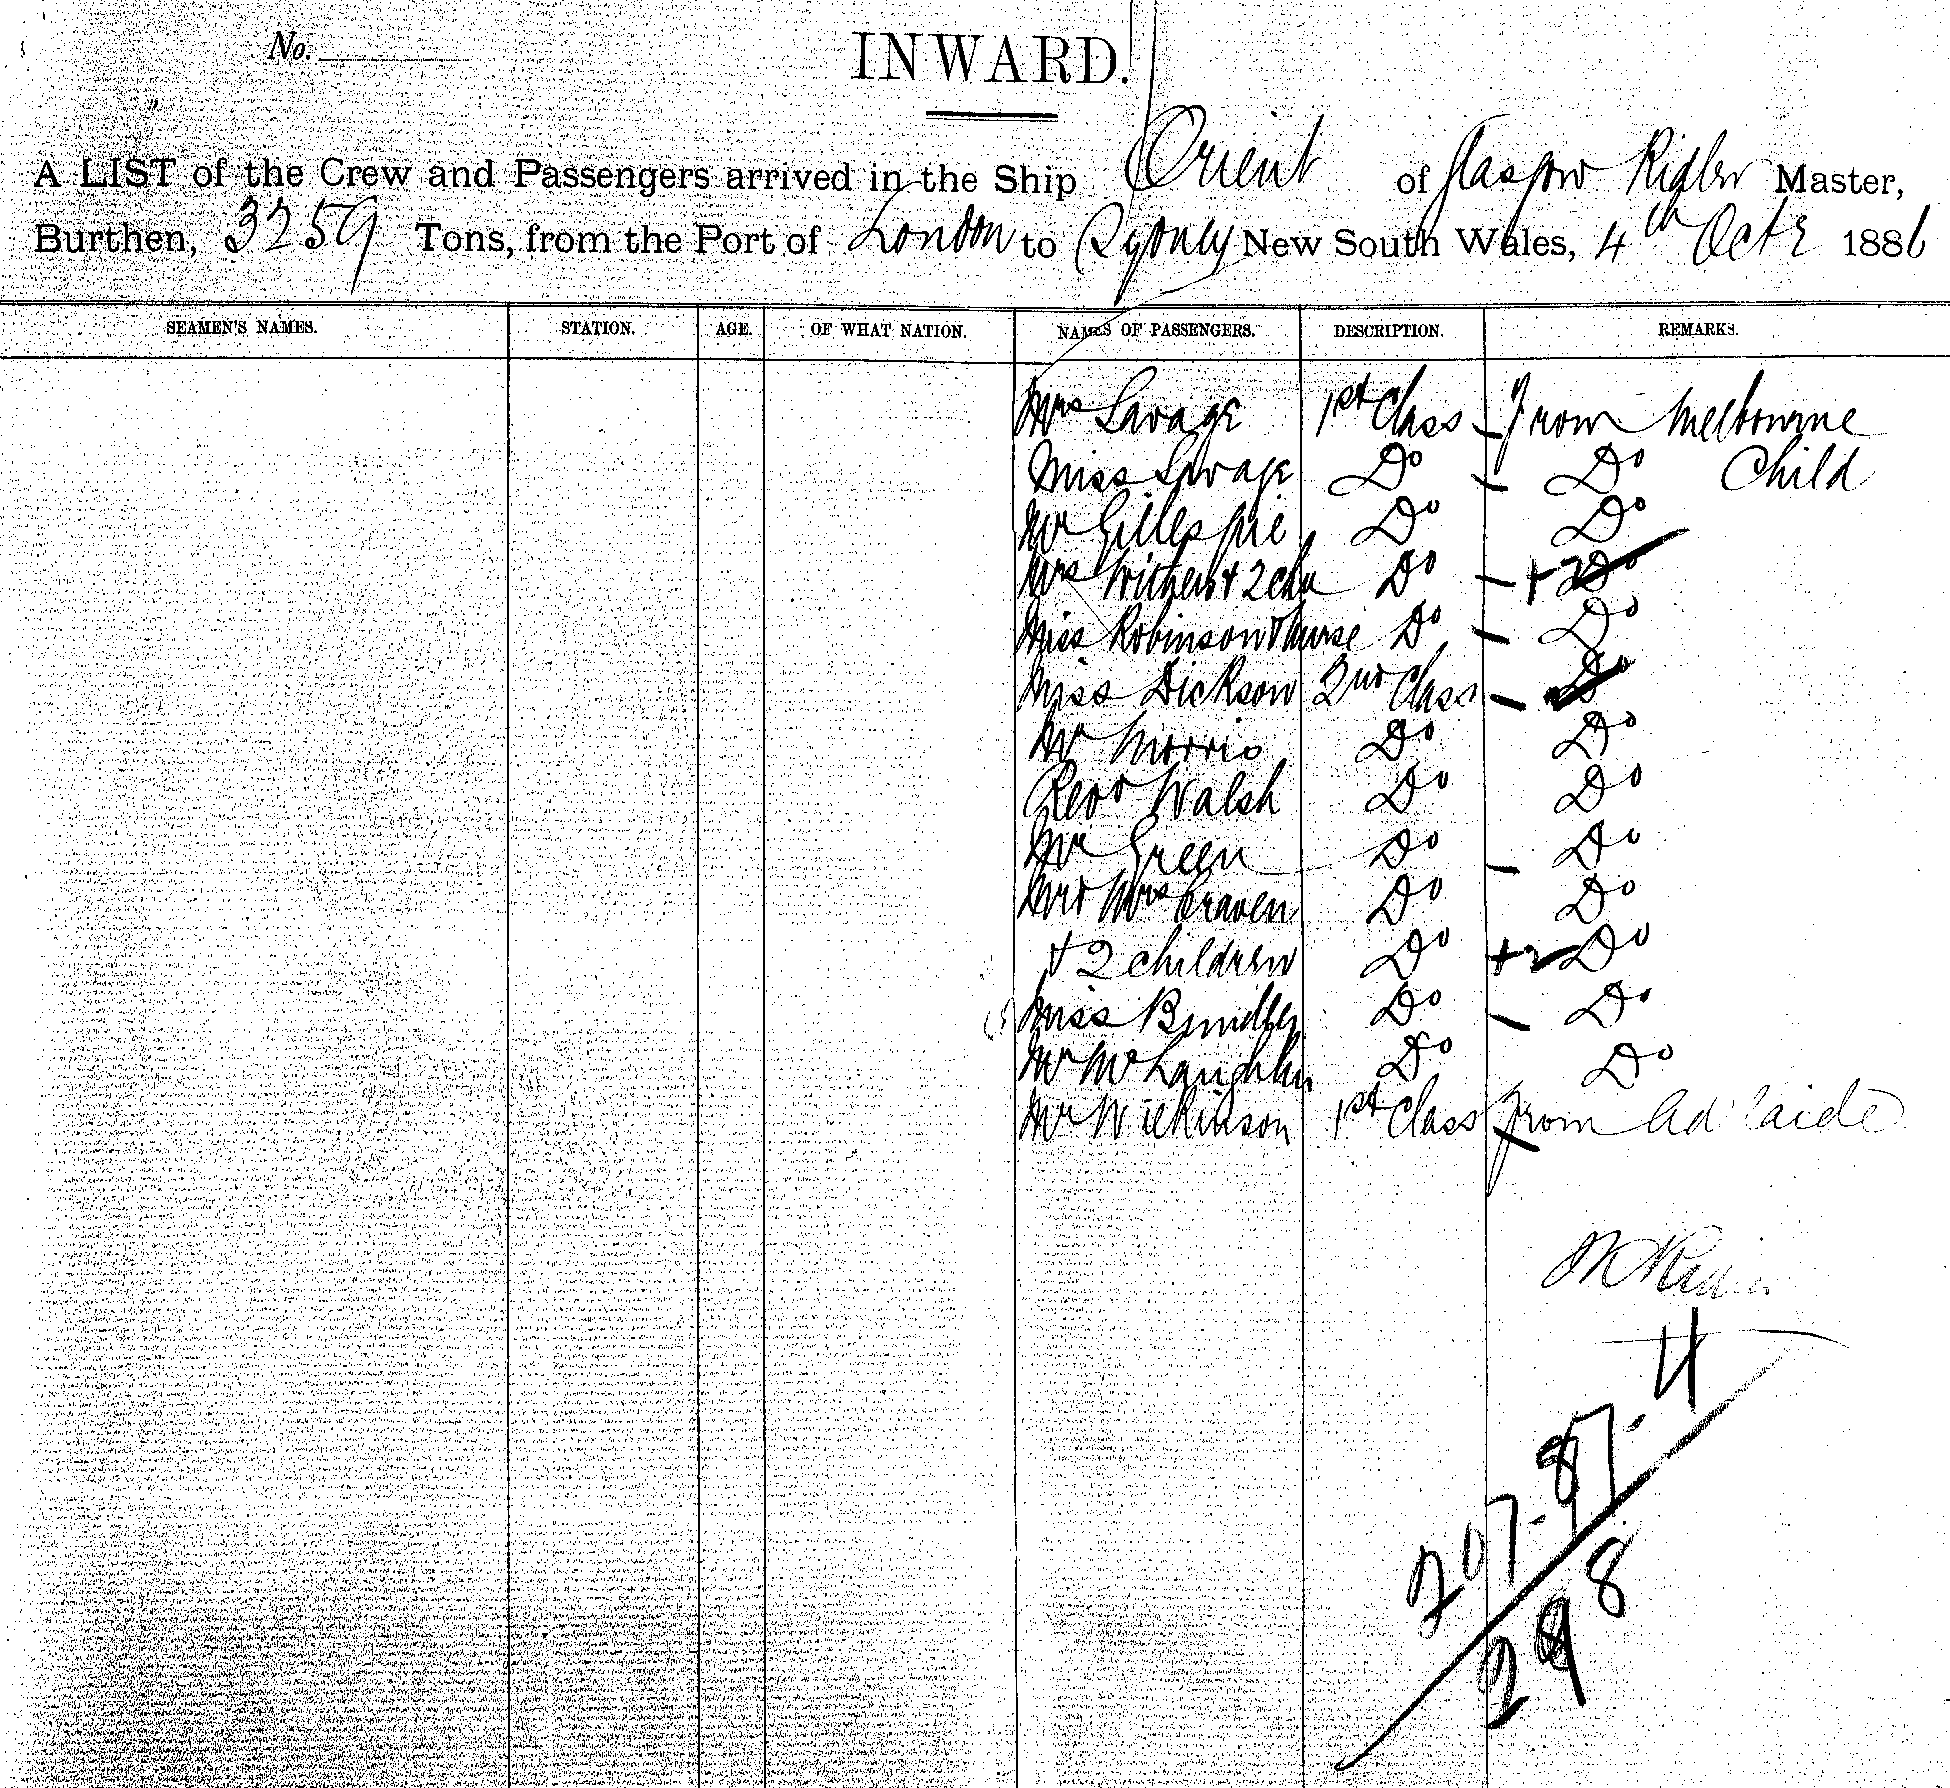 No.
INWARD.
A LIST of the Crew and Passengers arrived in the Ship Orient of Glasgow Ridler Master,
Burthen, 3259 Tons, from the Port of London to Sydney New South Wales, 4th Octr 1886
SEAMEN'S NAMES. STATION. AGE. OF WHAT NATION. NAMES OF PASSENGERS. DESCRIPTION. REMARKS.
Mrs Savage 1st Class - From Melbourne
Miss Savage Do - Do Child
Mr Gillespie Do Do
Mrs Withers + 2 chn Do - + 2 Do
Miss Robinson + Nurse Do - Do
Miss Dickson 2nd Class - Do
Mr Morris Do Do
Revd Walsh Do Do
Mr Green Do - Do
Mr + Mrs Craven Do Do
+ 2 children Do + 2 Do
Miss Do - Do
Mr McLaughlin Do Do
Mr Wilkinson 1st Class From Adelaide
4
207. 87.
298